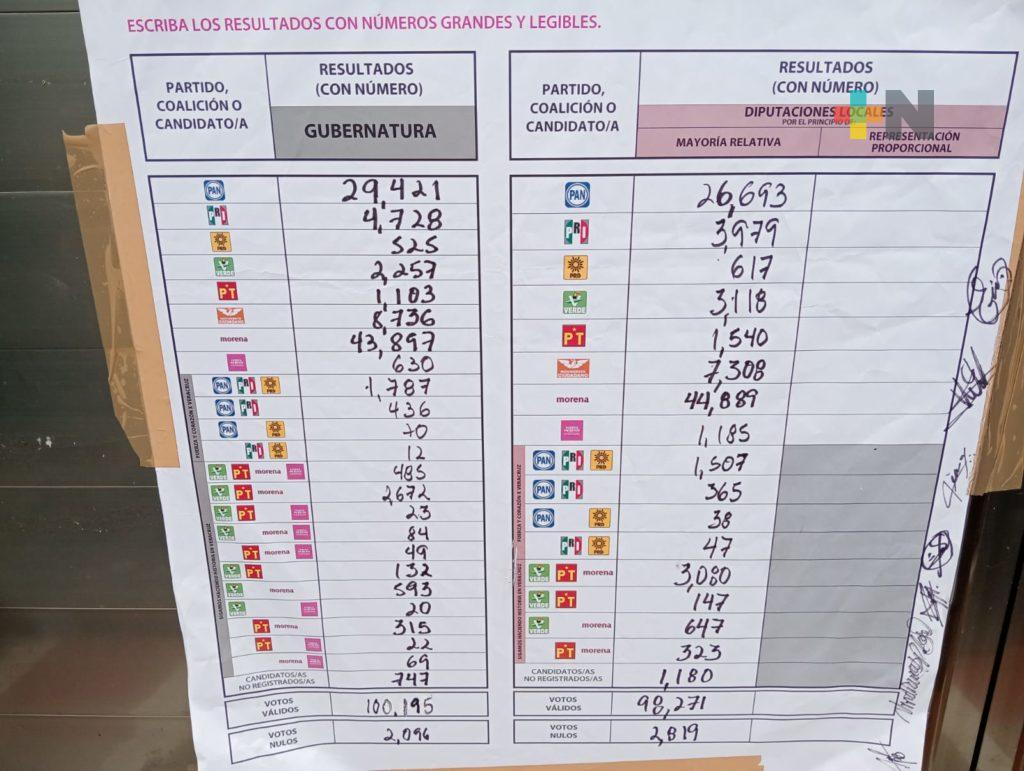 ESCRIBA LOS RESULTADOS CON NÚMEROS GRANDES Y LEGIBLES.
PARTIDO, COALICIÓN O CANDIDATO/A
RESULTADOS (CON NÚMERO)
GUBERNATURA
PAN 29,421
PRI 4,728
PRD 525
VERDE 2,257
PT 1,103
MOVIMIENTO CIUDADANO 8,736
morena 43,897
630
FUERZA Y CORAZÓN X VERACRUZ
PAN PRI PRD 1,787
PAN PRI 436
PAN PRD 70
PRI PRD 12
SIGAMOS HACIENDO HISTORIA EN VERACRUZ
VERDE PT morena 485
VERDE PT morena 2,672
VERDE PT 23
VERDE 84
PT morena 49
VERDE PT 132
VERDE morena 593
VERDE 20
PT morena 315
PT 22
morena 69
CANDIDATOS/AS NO REGISTRADOS/AS 747
VOTOS VÁLIDOS 100,195
VOTOS NULOS 2,096
PARTIDO, COALICIÓN O CANDIDATO/A
RESULTADOS (CON NÚMERO)
DIPUTACIONES LOCALES
POR EL PRINCIPIO DE
MAYORÍA RELATIVA
REPRESENTACIÓN PROPORCIONAL
+N
PAN 26,693
PRI 3,979
PRD 617
VERDE 3,118
PT 1,540
MOVIMIENTO CIUDADANO 7,308
morena 44,889
1,185
FUERZA Y CORAZÓN X VERACRUZ
PAN PRI PRD 1,507
PAN PRI 365
PAN PRD 38
PRI PRD 47
SIGAMOS HACIENDO HISTORIA EN VERACRUZ
VERDE PT morena 3,080
VERDE PT 147
VERDE morena 647
PT morena 323
1,180
VOTOS VÁLIDOS 98,271
VOTOS NULOS 2,819